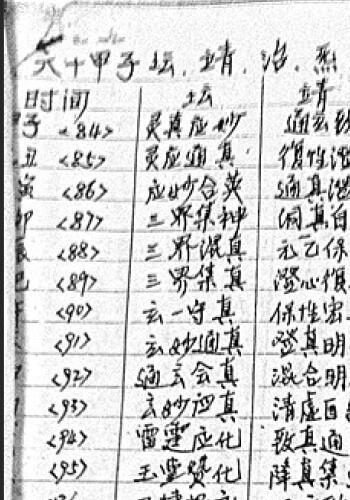 六十甲子坛.靖.治.
时间 坛 靖
子 <84> 灵真应妙 通玄
丑 <85> 灵应通真 復性
寅 <86> 应妙合英 通真
卯 <87> 三界集神 洞真自
辰 <88> 三界混真 元乙保
巳 <89> 三界集真 澄心復
<90> 玄一守真 保性
<91> 玄妙通真 澄真明
<92> 通玄会真 混合明
<93> 玄妙西真 清虚自
<94> 雷霆应化 致真通
<95> 玉堂赞化 降真集